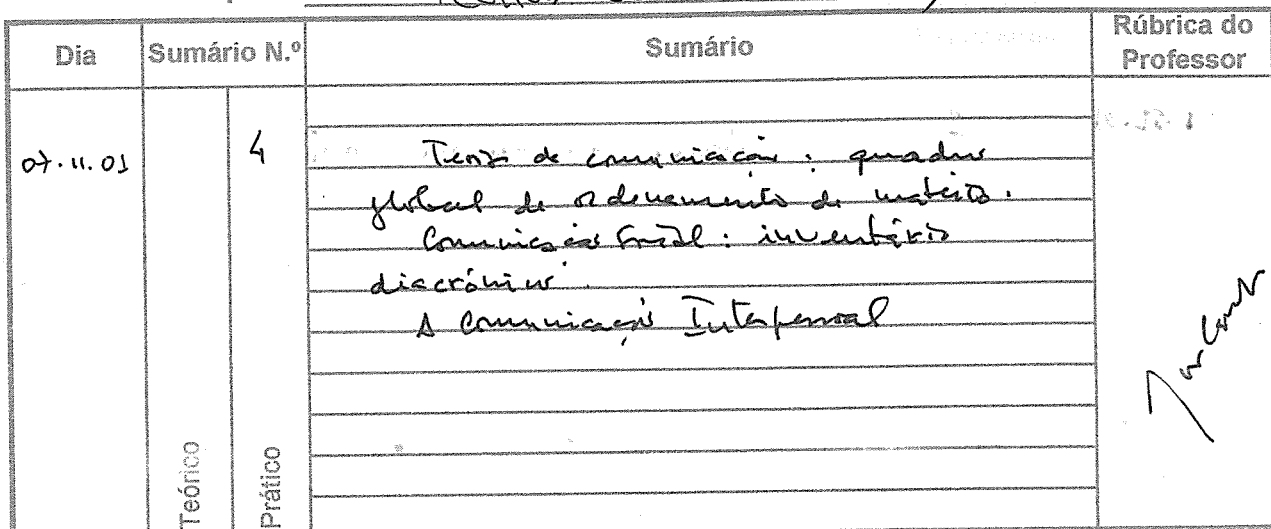 Dia Sumário N.º Sumário Rúbrica do Professor
07.11.01 4 Teoria de comunicação: quadro
global de ordenamento de matéria.
Comunicação Social: inventário
diacrónico.
A Comunicação Interpessoal
Teórico Prático